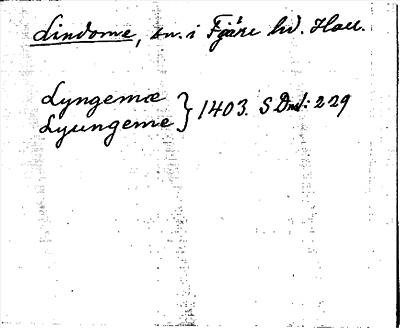 Lindome, sn. i Fjäre hd. Hall.
Lyngemæ
Lyungeme } 1403. SDns: 229